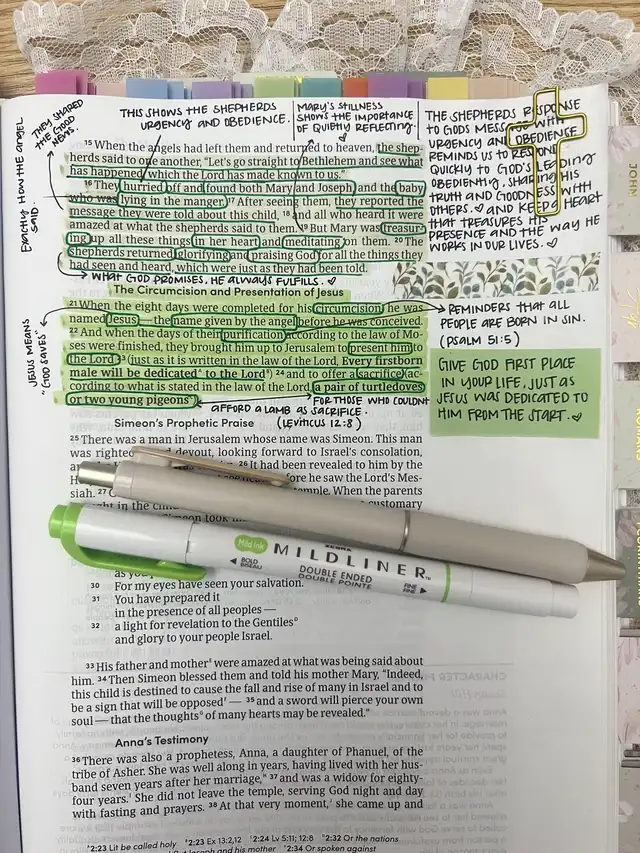 THEY SHARED
THE GOOD
NEWS.
EXACTLY HOW THE ANGEL
SAID.
THIS SHOWS THE SHEPHERDS
URGENCY AND OBEDIENCE.
MARY'S STILLNESS
SHOWS THE IMPORTANCE
OF QUIETLY REFLECTING.
THE SHEPHERDS RESPONSE
TO GODS MESSAGE WITH
URGENCY AND OBEDIENCE
REMINDS US TO RESPOND
QUICKLY TO GOD'S LEADING
OBEDIENTLY, SHARING HIS
TRUTH AND GOODNESS WITH
OTHERS. AND KEEPS A HEART
THAT TREASURES HIS
PRESENCE AND THE WAY HE
WORKS IN OUR LIVES.
15 When the angels had left them and returned to heaven, the shep-
herds said to one another, "Let's go straight to Bethlehem and see what
has happened which the Lord has made known to us."
16 They hurried off and found both Mary and Joseph, and the baby
who was lying in the manger. 17 After seeing them, they reported the
message they were told about this child, 18 and all who heard it were
amazed at what the shepherds said to them. 19 But Mary was treasur-
ing up all these things in her heart and meditating on them. 20 The
shepherds returned, glorifying and praising God for all the things
they had seen and heard, which were just as they had been told.
WHAT GOD PROMISES, HE ALWAYS FULFILLS.
The Circumcision and Presentation of Jesus
21 When the eight days were completed for his circumcision, he was
named Jesus — the name given by the angel before he was conceived.
22 And when the days of their purification according to the law of Mo-
ses were finished, they brought him up to Jerusalem to present him to
the Lord 23 (just as it is written in the law of the Lord, Every firstborn
male will be dedicated to the Lord) 24 and to offer a sacrifice (ac-
cording to what is stated in the law of the Lord, a pair of turtledoves
or two young pigeons)
JESUS MEANS
"GOD SAVES"
REMINDERS THAT ALL
PEOPLE ARE BORN IN SIN.
(PSALM 51:5)
GIVE GOD FIRST PLACE
IN YOUR LIFE, JUST AS
JESUS WAS DEDICATED TO
HIM FROM THE START.
FOR THOSE WHO COULDN'T
AFFORD A LAMB AS SACRIFICE.
(LEVITICUS 12:8)
Simeon's Prophetic Praise
25 There was a man in Jerusalem whose name was Simeon. This man
was righteous and devout, looking forward to Israel's consolation,
26 It had been revealed to him by the
before he saw the Lord's Mes-
siah. 27 temple. When the parents
customary
Simeon took
Mild Ink
ZEBRA
MILDLINER™
BOLD
BISEAU
DOUBLE ENDED
DOUBLE POINTE
FINE
FINE
30 For my eyes have seen your salvation.
31 You have prepared it
in the presence of all peoples —
32 a light for revelation to the Gentiles
and glory to your people Israel.
33 His father and mother were amazed at what was being said about
him. 34 Then Simeon blessed them and told his mother Mary, "Indeed,
this child is destined to cause the fall and rise of many in Israel and to
be a sign that will be opposed — 35 and a sword will pierce your own
soul — that the thoughts of many hearts may be revealed."
Anna's Testimony
36 There was also a prophetess, Anna, a daughter of Phanuel, of the
tribe of Asher. She was well along in years, having lived with her hus-
band seven years after her marriage, 37 and was a widow for eighty-
four years. She did not leave the temple, serving God night and day
with fasting and prayers. 38 At that very moment, she came up and
2:23 Lit be called holy 2:23 Ex 13:2,12 2:24 Lv 5:11; 12:8 2:32 Or the nations
Joseph and his mother 2:34 Or spoken against
JOHN